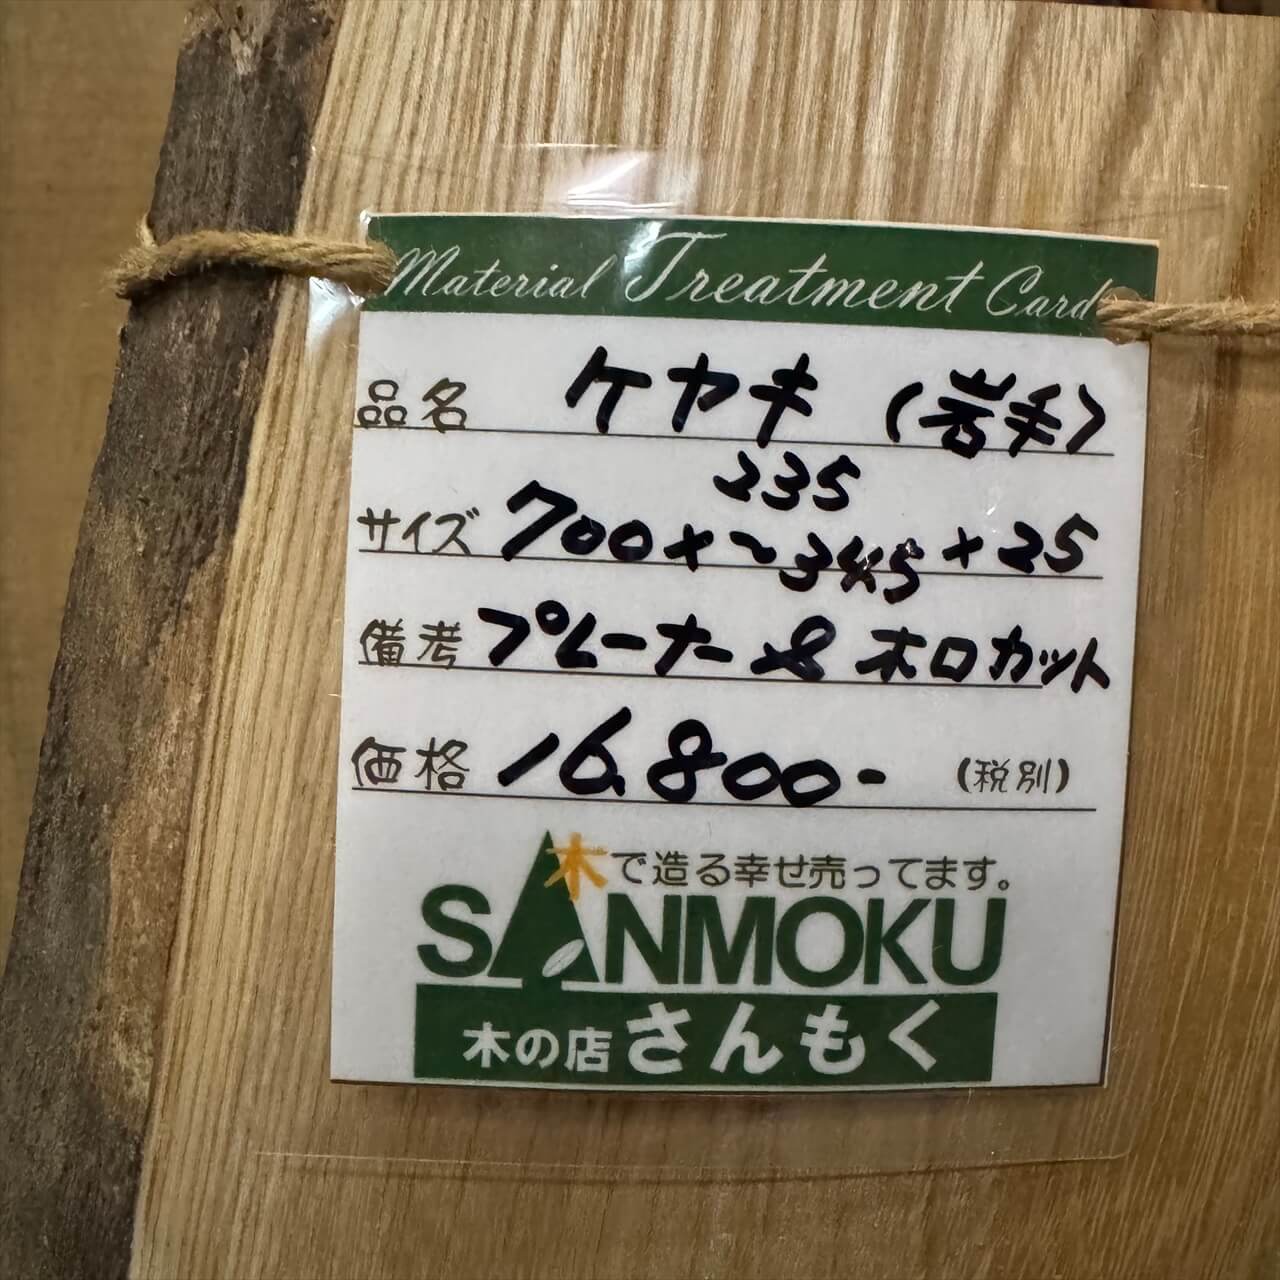 Material Treatment Card
品名 ケヤキ (岩手)
235
サイズ 700×~345×25
備考 プレーナー & 木口カット
価格 16,800- (税別)
木で造る幸せ売ってます。
SANMOKU
木の店 さんもく